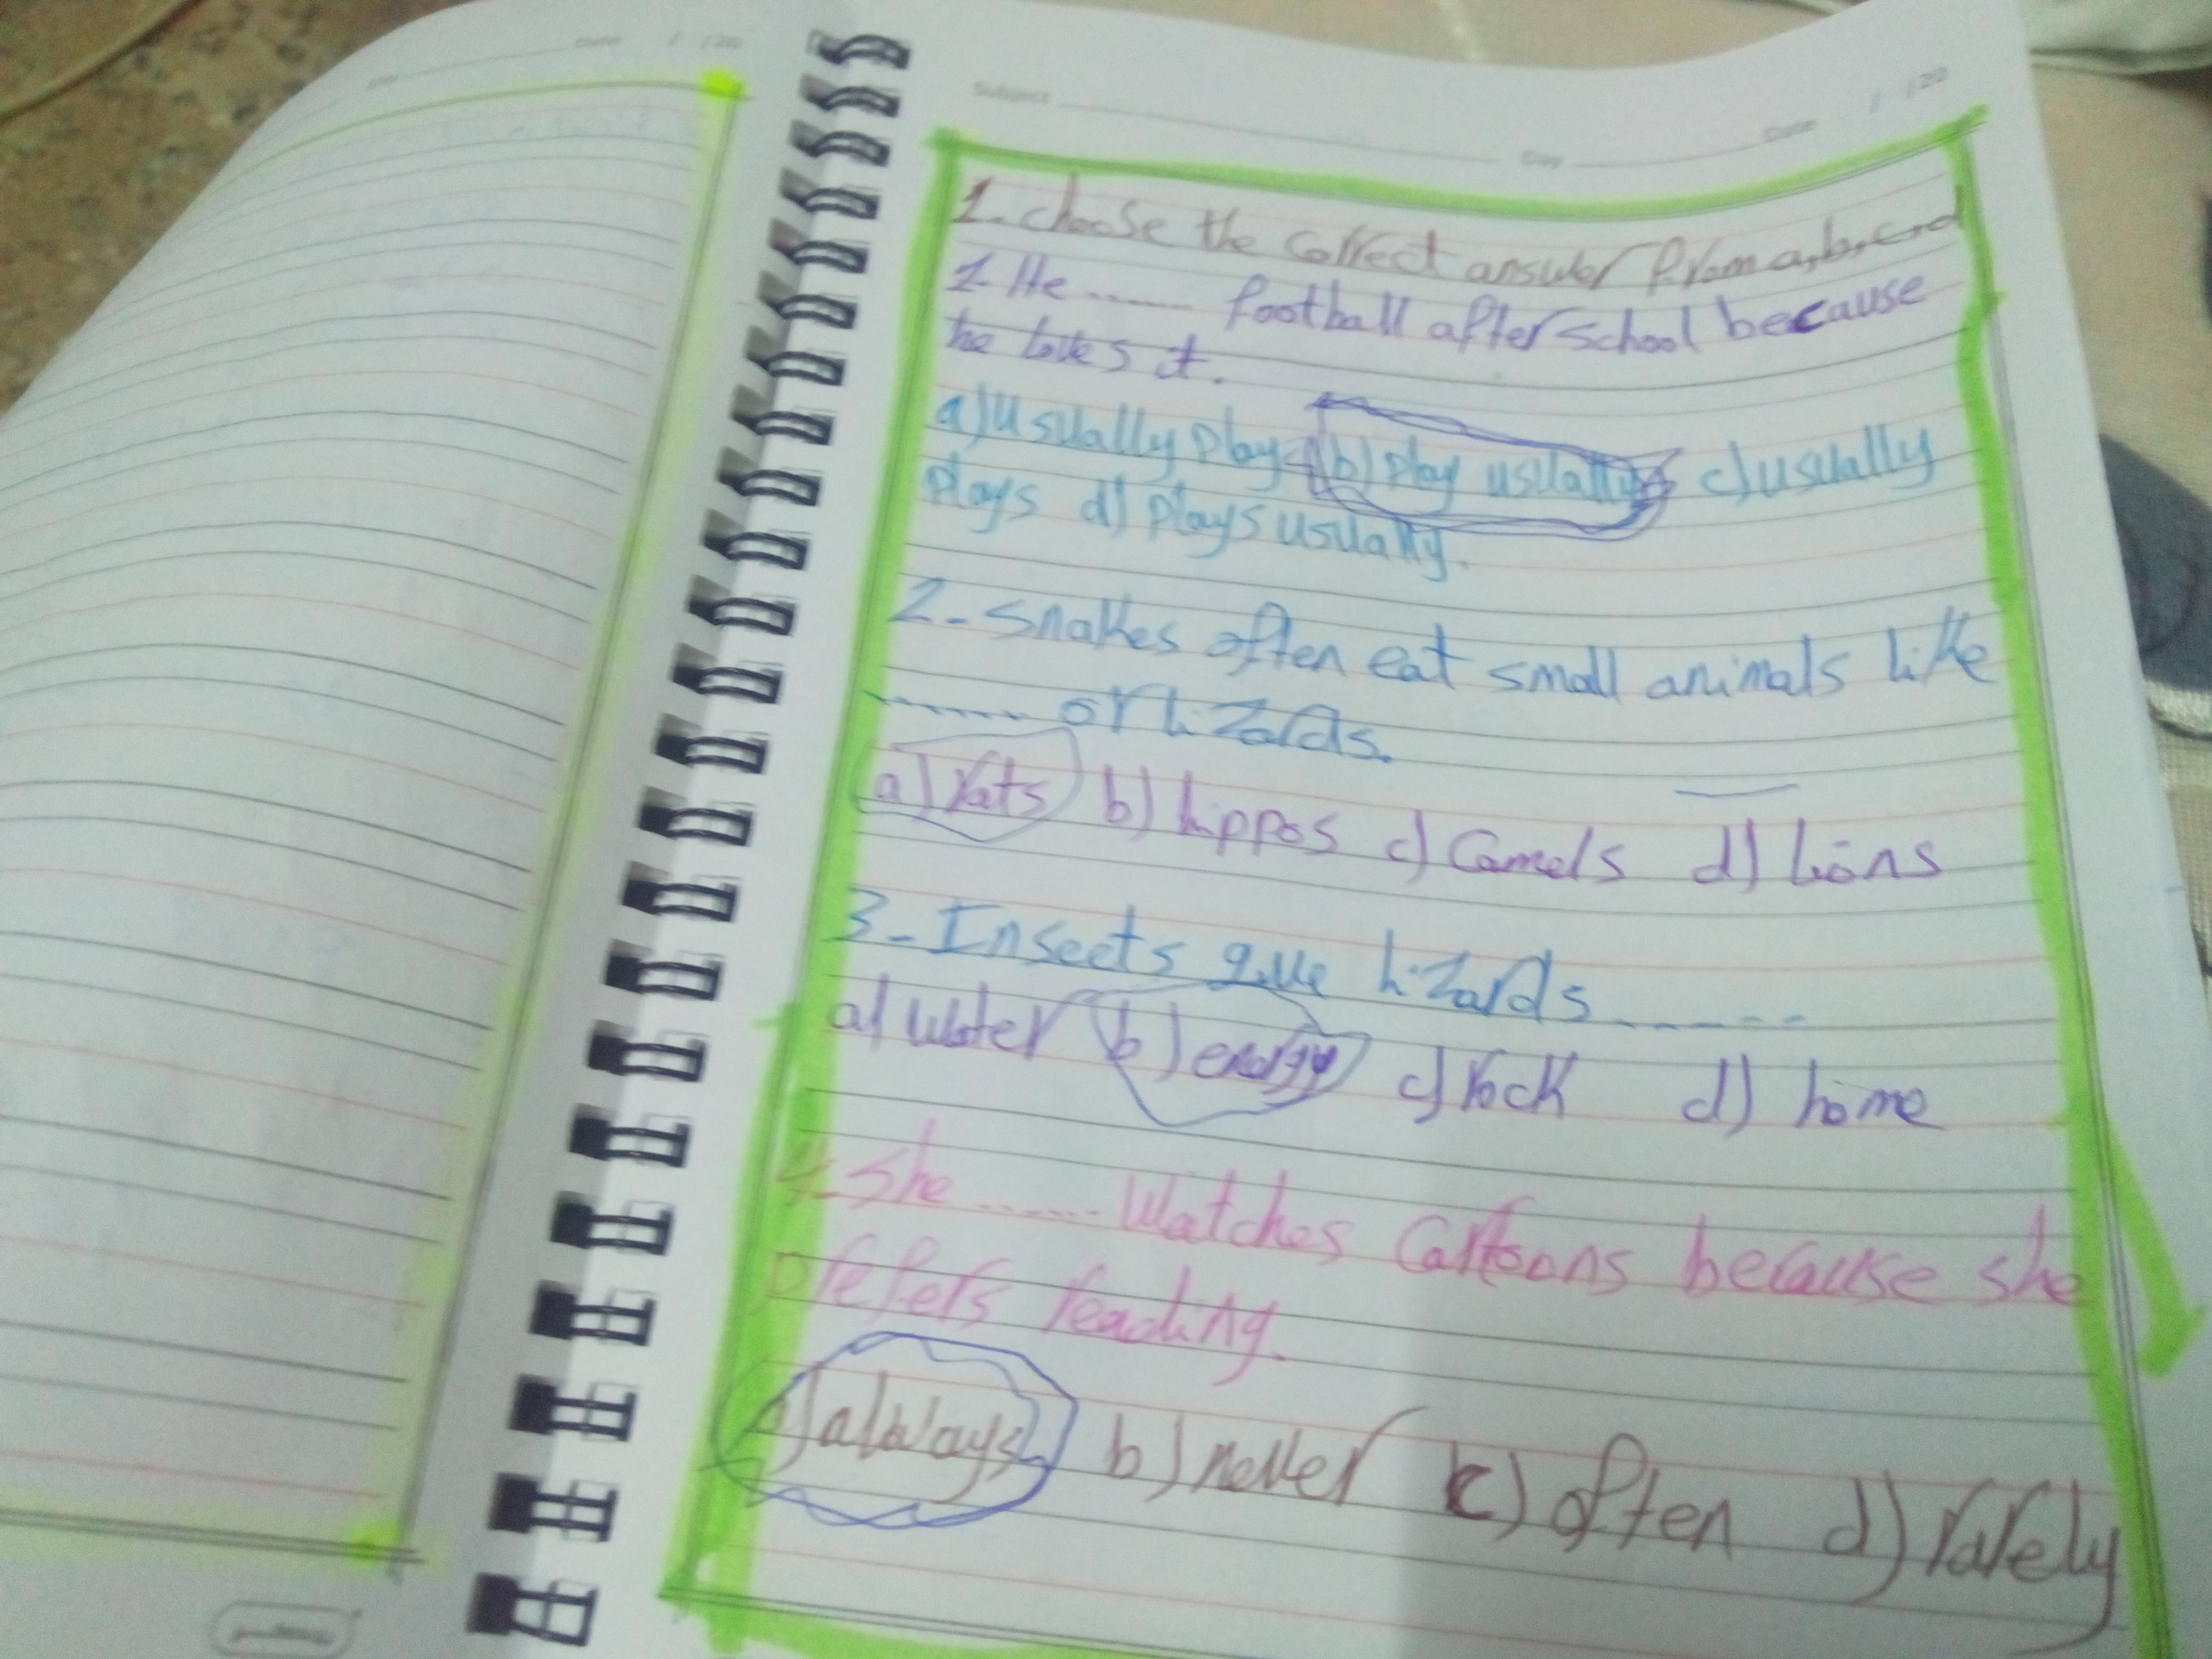 Date / /20
Subject Day Date / /20
1-choose the correct answer from a,b,c,d
1-He ...... football after school because
he loves it.
a) usually play (b) play usually c) usually
plays d) plays usually.
2- Snakes often eat small animals like
....... or lizards.
a) rats b) hippos c) Camels d) lions
3- Insects give lizards ......
a) water b) energy c) rock d) home
4- She ...... Watches Cartoons because she
prefers reading.
a) always b) never c) often d) rarely